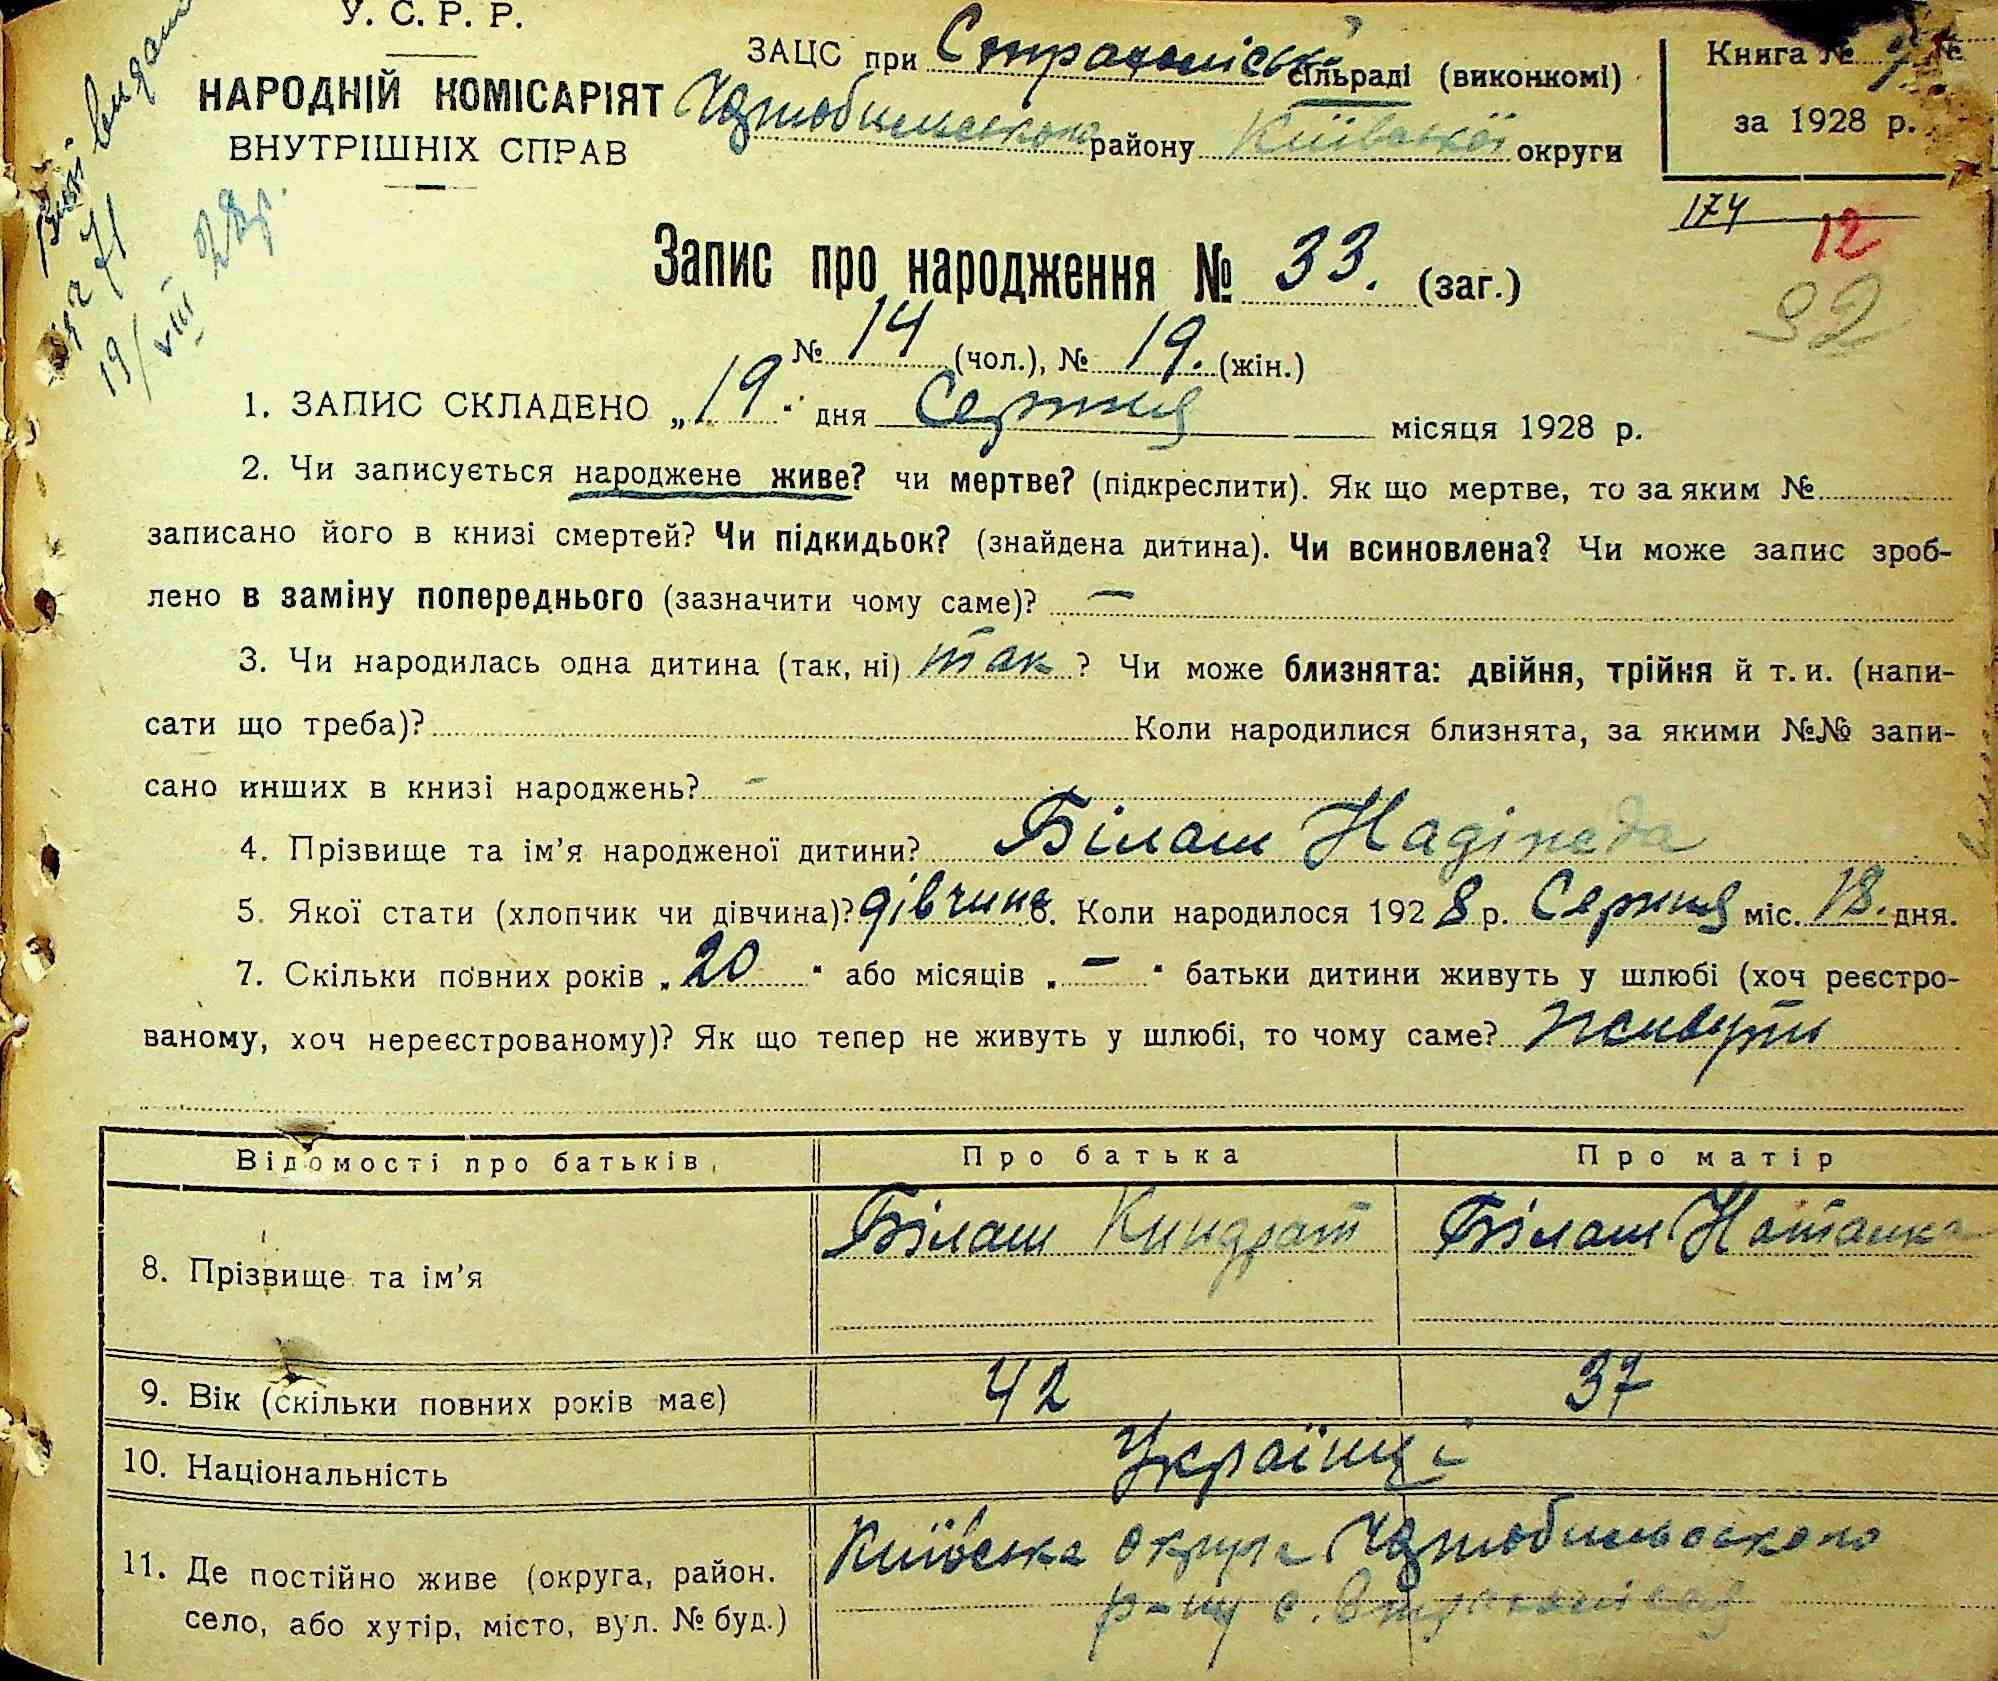 У. С. Р. Р.
НАРОДНІЙ КОМІСАРІЯТ
ВНУТРІШНІХ СПРАВ
ЗАЦС при Страхоліській сільраді (виконкомі)
району Київської округи
Книга №
за 1928 р.
174
12
92
19/VIII 28р.
Запис про народження № 33. (заг.)
№ 14 (чол.), № 19. (жін.)
1. ЗАПИС СКЛАДЕНО „19“ дня Серпня місяця 1928 р.
2. Чи записується народжене живе? чи мертве? (підкреслити). Як що мертве, то за яким №
записано його в книзі смертей? Чи підкидьок? (знайдена дитина). Чи всиновлена? Чи може запис зроб-
лено в заміну попереднього (зазначити чому саме)? —
3. Чи народилась одна дитина (так, ні) так? Чи може близнята: двійня, трійня й т. и. (напи-
сати що треба)? Коли народилися близнята, за якими №№ запи-
сано инших в книзі народжень? -
4. Прізвище та ім’я народженої дитини? Білаш
5. Якої стати (хлопчик чи дівчина)? дівчина 6. Коли народилося 1928 р. Серпня міс. 18. дня.
7. Скільки повних років „20“ або місяців „–“ батьки дитини живуть у шлюбі (хоч реєстро-
ваному, хоч нереєстрованому)? Як що тепер не живуть у шлюбі, то чому саме? живуть
Відомості про батьків Про батька Про матір
8. Прізвище та ім’я Білаш Киндрат Білаш Наталка
9. Вік (скільки повних років має) 42 37
10. Національність Українці
11. Де постійно живе (округа, район. село, або хутір, місто, вул. № буд.) Київська округа
р-ну с.